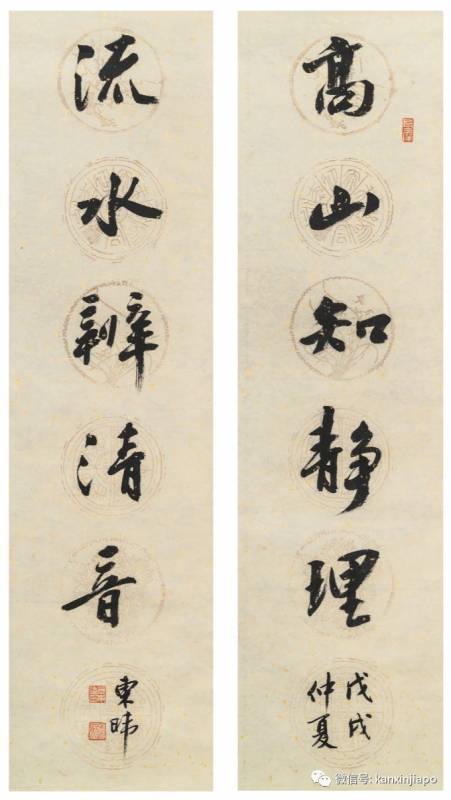 高山知静理
戊戌
仲夏
流水辨清音
東暐
微信号: kanxinjiapo